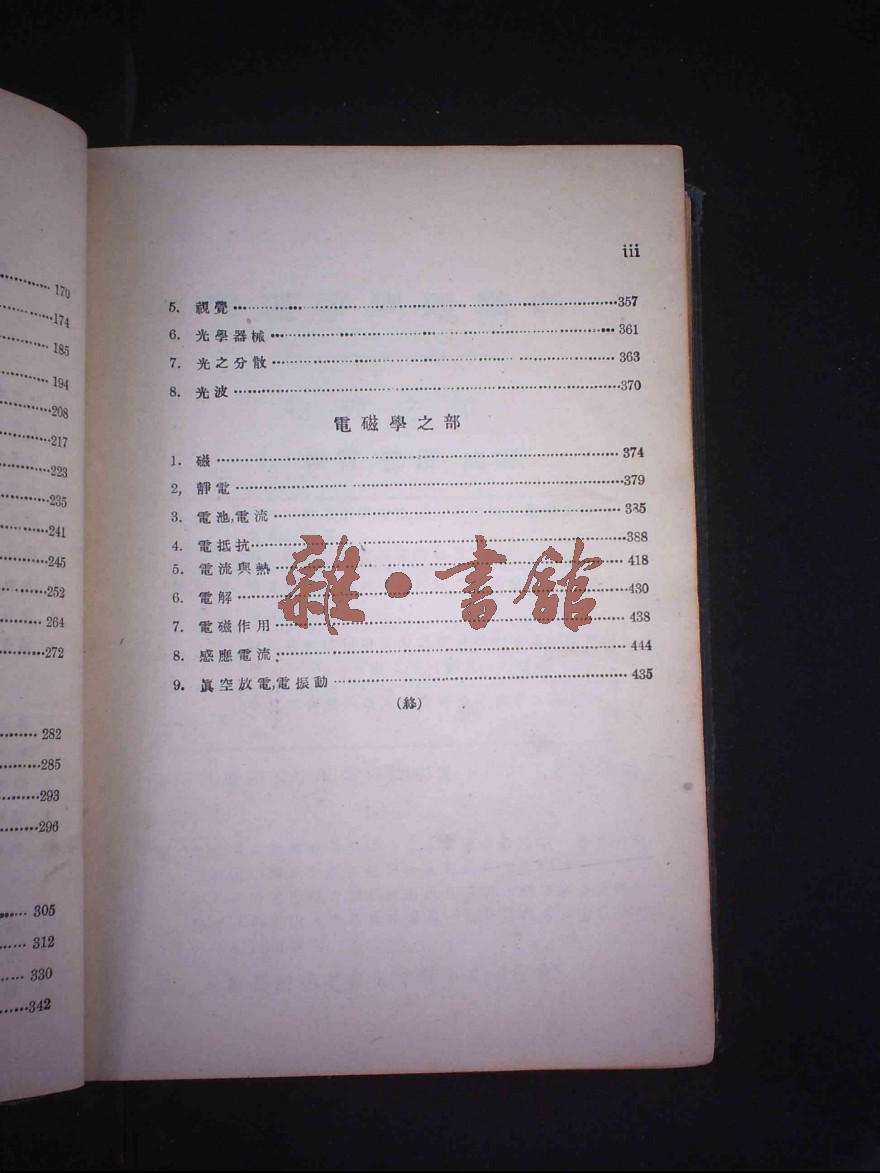 170
174
185
194
208
217
223
235
241
245
252
264
272
282
285
293
296
305
312
330
342
iii
5. 視覺 357
6. 光學器械 361
7. 光之分散 363
8. 光波 370
電磁學之部
1. 磁 374
2, 靜電 379
3. 電池,電流 385
4. 電抵抗 388
5. 電流與熱 418
6. 電解 430
7. 電磁作用 438
8. 感應電流 444
9. 眞空放電,電振動 435
(終)
雜·書館